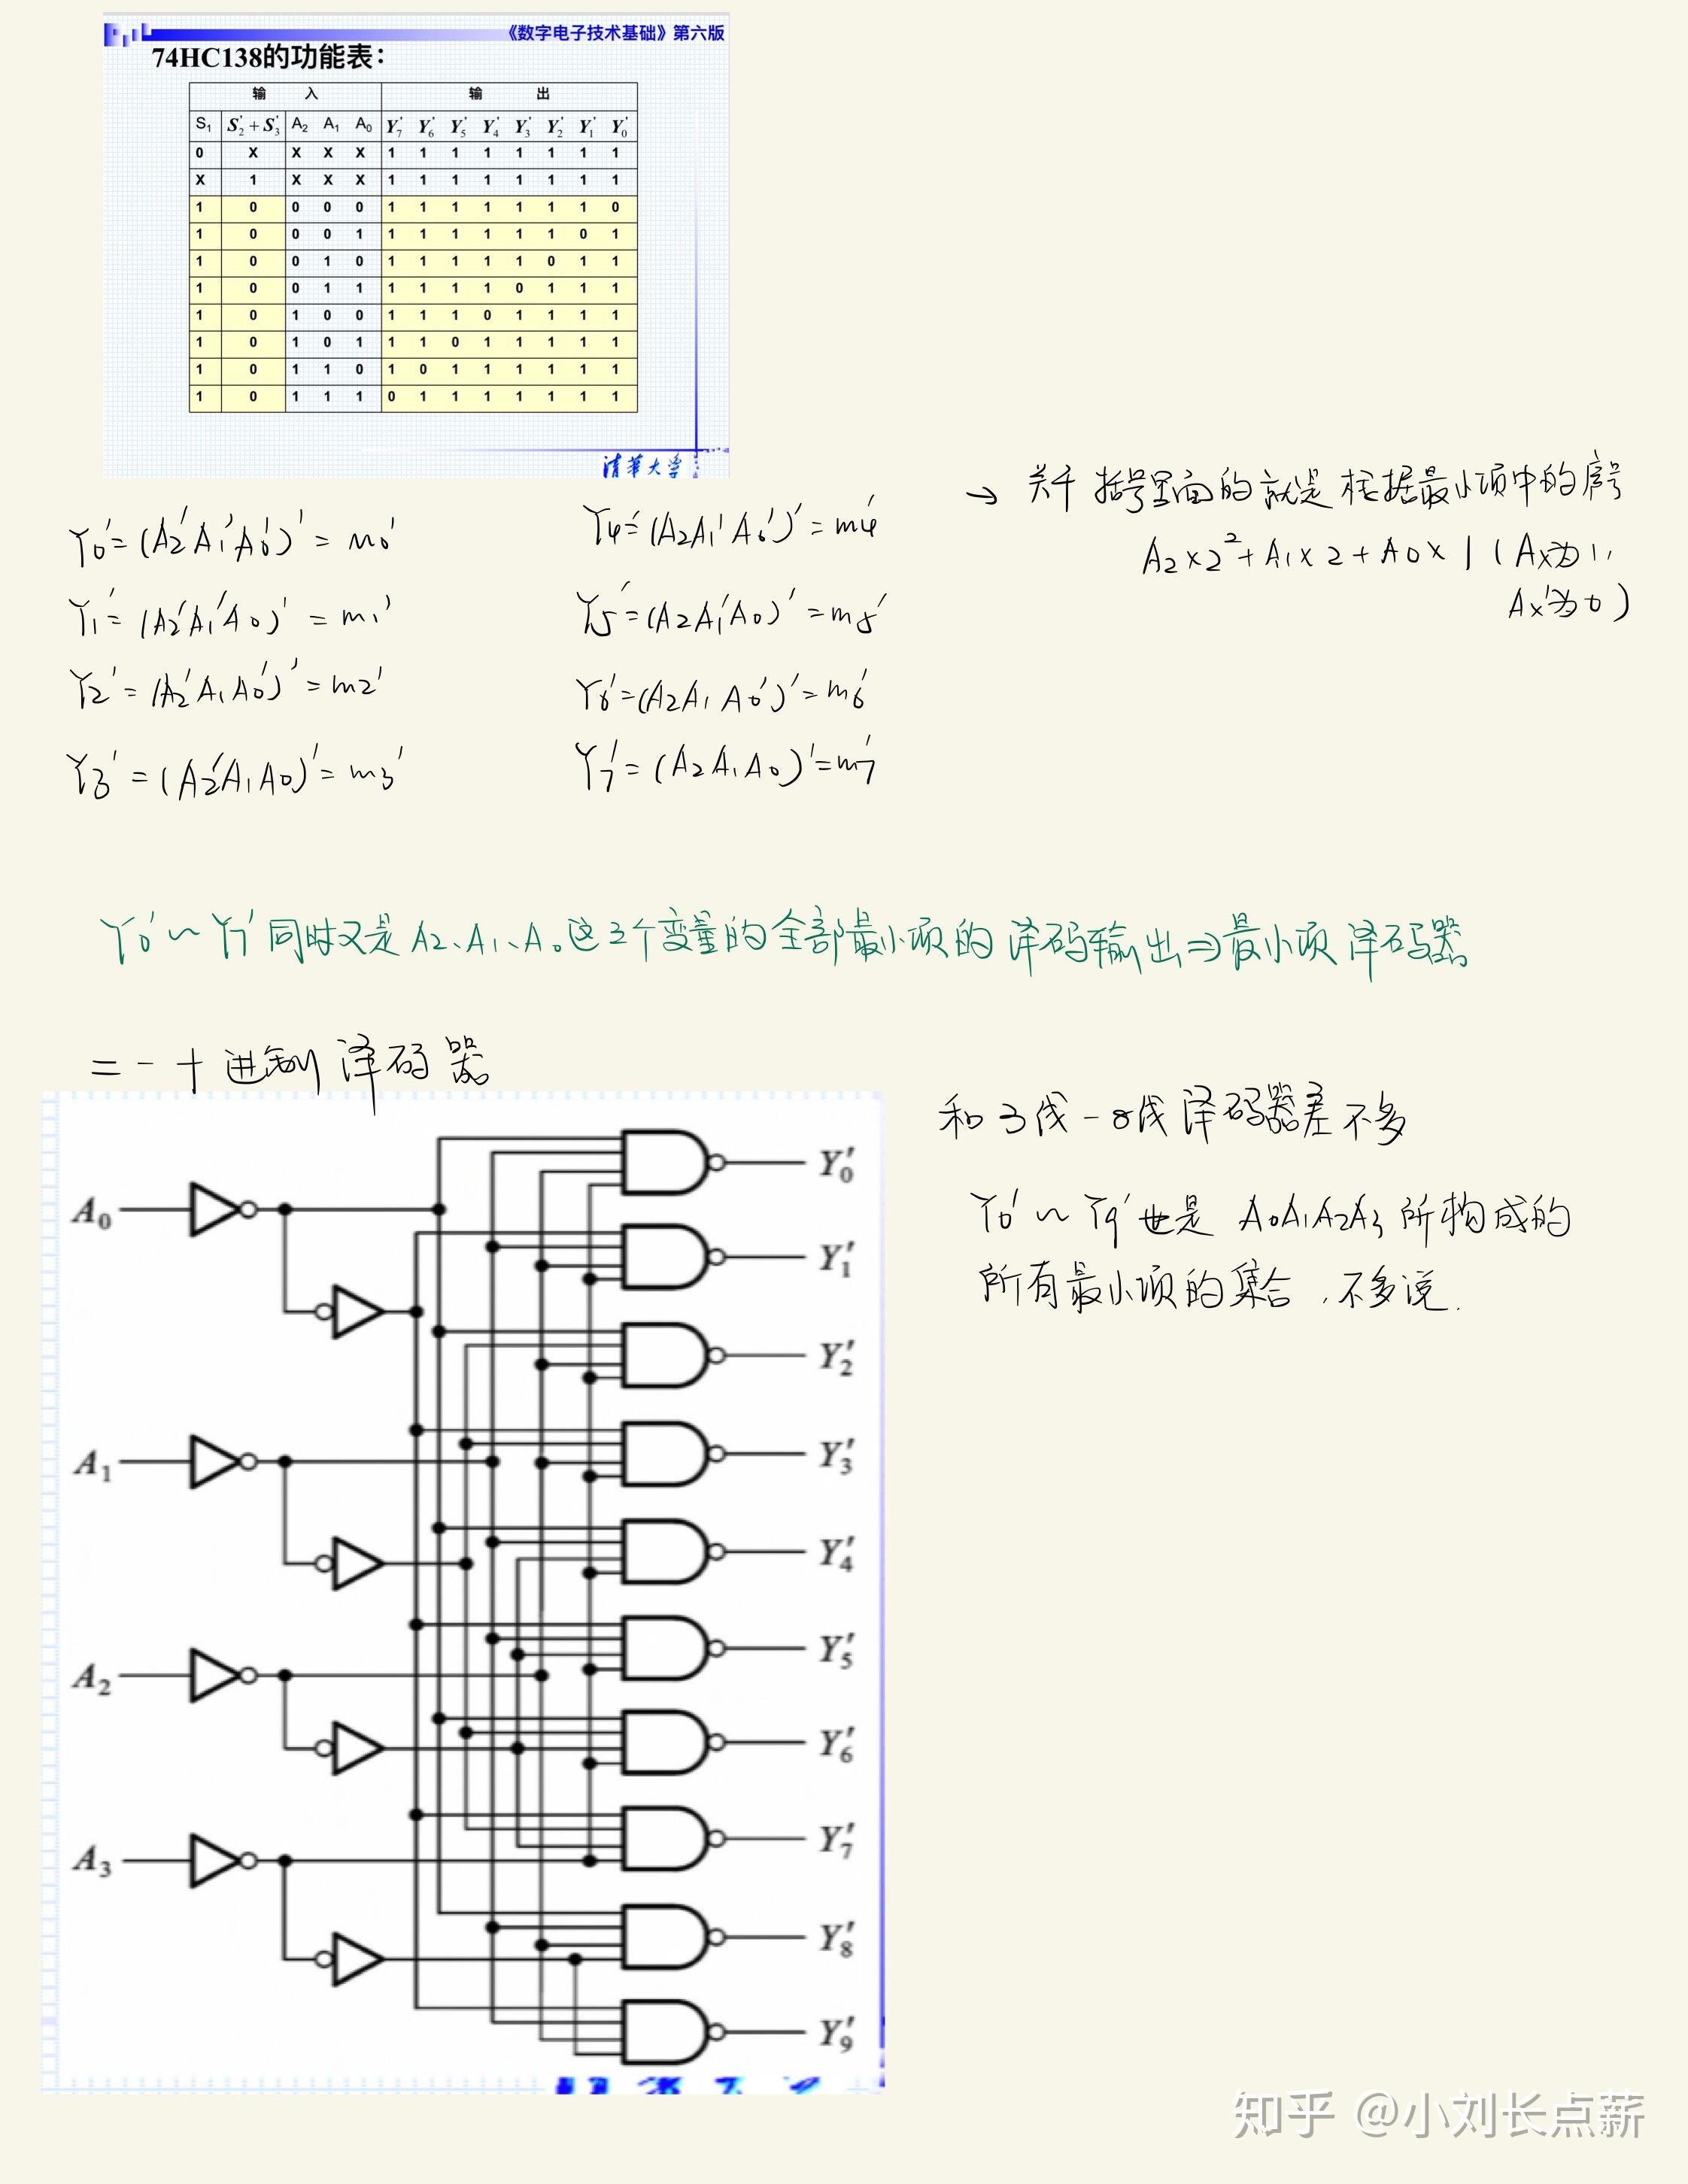 《数字电子技术基础》第六版
74HC138的功能表：
输 入 输 出
S₁ S₂′+S₃′ A₂ A₁ A₀ Y₇′ Y₆′ Y₅′ Y₄′ Y₃′ Y₂′ Y₁′ Y₀′
0 X X X X 1 1 1 1 1 1 1 1
X 1 X X X 1 1 1 1 1 1 1 1
1 0 0 0 0 1 1 1 1 1 1 1 0
1 0 0 0 1 1 1 1 1 1 1 0 1
1 0 0 1 0 1 1 1 1 1 0 1 1
1 0 0 1 1 1 1 1 1 0 1 1 1
1 0 1 0 0 1 1 1 0 1 1 1 1
1 0 1 0 1 1 1 0 1 1 1 1 1
1 0 1 1 0 1 0 1 1 1 1 1 1
1 0 1 1 1 0 1 1 1 1 1 1 1
清华大学
Y0′=(A2′A1′A0′)′=m0′
Y1′=(A2′A1′A0)′=m1′
Y2′=(A2′A1A0′)′=m2′
Y3′=(A2′A1A0)′=m3′
Y4′=(A2A1′A0′)′=m4′
Y5′=(A2A1′A0)′=m5′
Y6′=(A2A1A0′)′=m6′
Y7′=(A2A1A0)′=m7′
→ 关于括号里面的就是根据最小项中的序号
A2×2²+A1×2+A0×1(Ax为1,
Ax′为0)
Y0′~Y7′同时又是A2、A1、A0这3个变量的全部最小项的译码输出⇒最小项译码器
二-十进制译码器
和3线-8线译码器差不多
Y0′~Y9′也是A0A1A2A3所构成的
所有最小项的集合,不多说.
A₀
A₁
A₂
A₃
Y₀′
Y₁′
Y₂′
Y₃′
Y₄′
Y₅′
Y₆′
Y₇′
Y₈′
Y₉′
知乎 @小刘长点薪